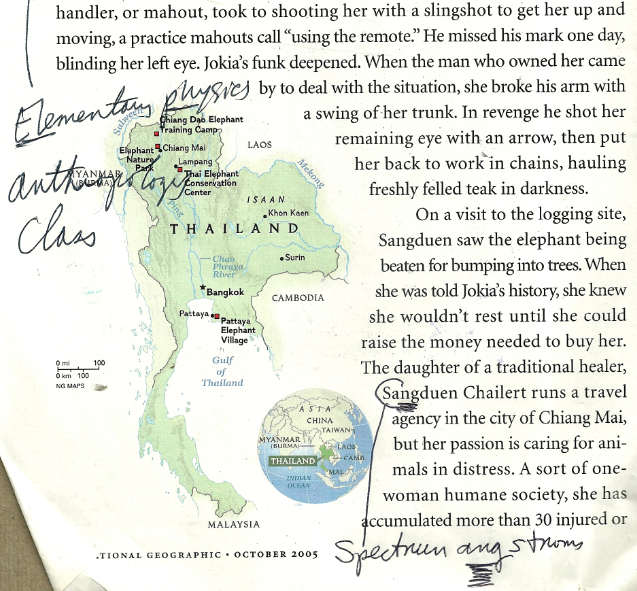 handler, or mahout, took to shooting her with a slingshot to get her up and
moving, a practice mahouts call “using the remote.” He missed his mark one day,
blinding her left eye. Jokia’s funk deepened. When the man who owned her came
by to deal with the situation, she broke his arm with
a swing of her trunk. In revenge he shot her
remaining eye with an arrow, then put
her back to work in chains, hauling
freshly felled teak in darkness.
On a visit to the logging site,
Sangduen saw the elephant being
beaten for bumping into trees. When
she was told Jokia’s history, she knew
she wouldn’t rest until she could
raise the money needed to buy her.
The daughter of a traditional healer,
Sangduen Chailert runs a travel
agency in the city of Chiang Mai,
but her passion is caring for ani-
mals in distress. A sort of one-
woman humane society, she has
accumulated more than 30 injured or
Elementary physics
anthropologic
Class
Salween
Chiang Dao Elephant
Training Camp
Elephant
Nature
Park
Chiang Mai
Lampang
Thai Elephant
Conservation
Center
MYANMAR
(BURMA)
LAOS
Mekong
Ping
ISAAN
Khon Kaen
THAILAND
Chao
Phraya
River
Surin
Bangkok
CAMBODIA
Pattaya
Pattaya
Elephant
Village
Gulf
of
Thailand
0 mi 100
0 km 100
NG MAPS
MALAYSIA
ASIA
CHINA
TAIWAN
MYANMAR
(BURMA)
LAOS
THAILAND
CAMB.
MAL.
INDIAN
OCEAN
TIONAL GEOGRAPHIC • OCTOBER 2005
Spectrum angstroms